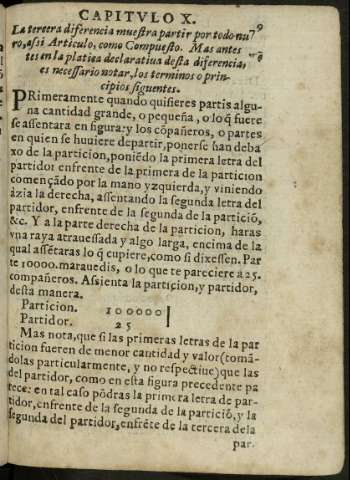 CAPITVLO X.
La tercera diferencia muestra partir por todo nu 79
ro, assi Articulo, como Compuesto. Mas antes
tes en la platica declaratiua desta diferencia,
es necessario notar, los terminos o prin-
cipios siguentes.
PRimeramente quando quisieres partis algu-
na cantidad grande, o pequeña, o lo q̃ fuere
se assentara en figura: y los cõpañeros, o partes
en quien se huuiere de partir, ponerse han deba
xo de la particion, poniẽdo la primera letra del
partidor enfrente de la primera de la particion
començãdo por la mano yzquierda, y viniendo
àzia la derecha, assentando la segunda letra del
partidor, enfrente de la segunda de la particiõ,
&c. Y a la parte derecha de la particion, haras
vna raya atrauessada y algo larga, encima de la
qual assẽtaras lo q̃ cupiere, como si dixessen. Par
te 10000. marauedis, o lo que te pareciere à 25.
compañeros. Assienta la particion, y partidor,
desta manera.
Particion. 100000
Partidor. 25
Mas nota, que si las primeras letras de la par
ticion fueren de menor cantidad y valor (tomã-
dolas particularmente, y no respectiue) que las
del partidor, como en esta figura precedente pa
rece: en tal caso põdras la primera letra de par-
tidor, enfrente de la segunda de la particiõ, y la
segunda del partidor, enfrẽte de la tercera de la
par.